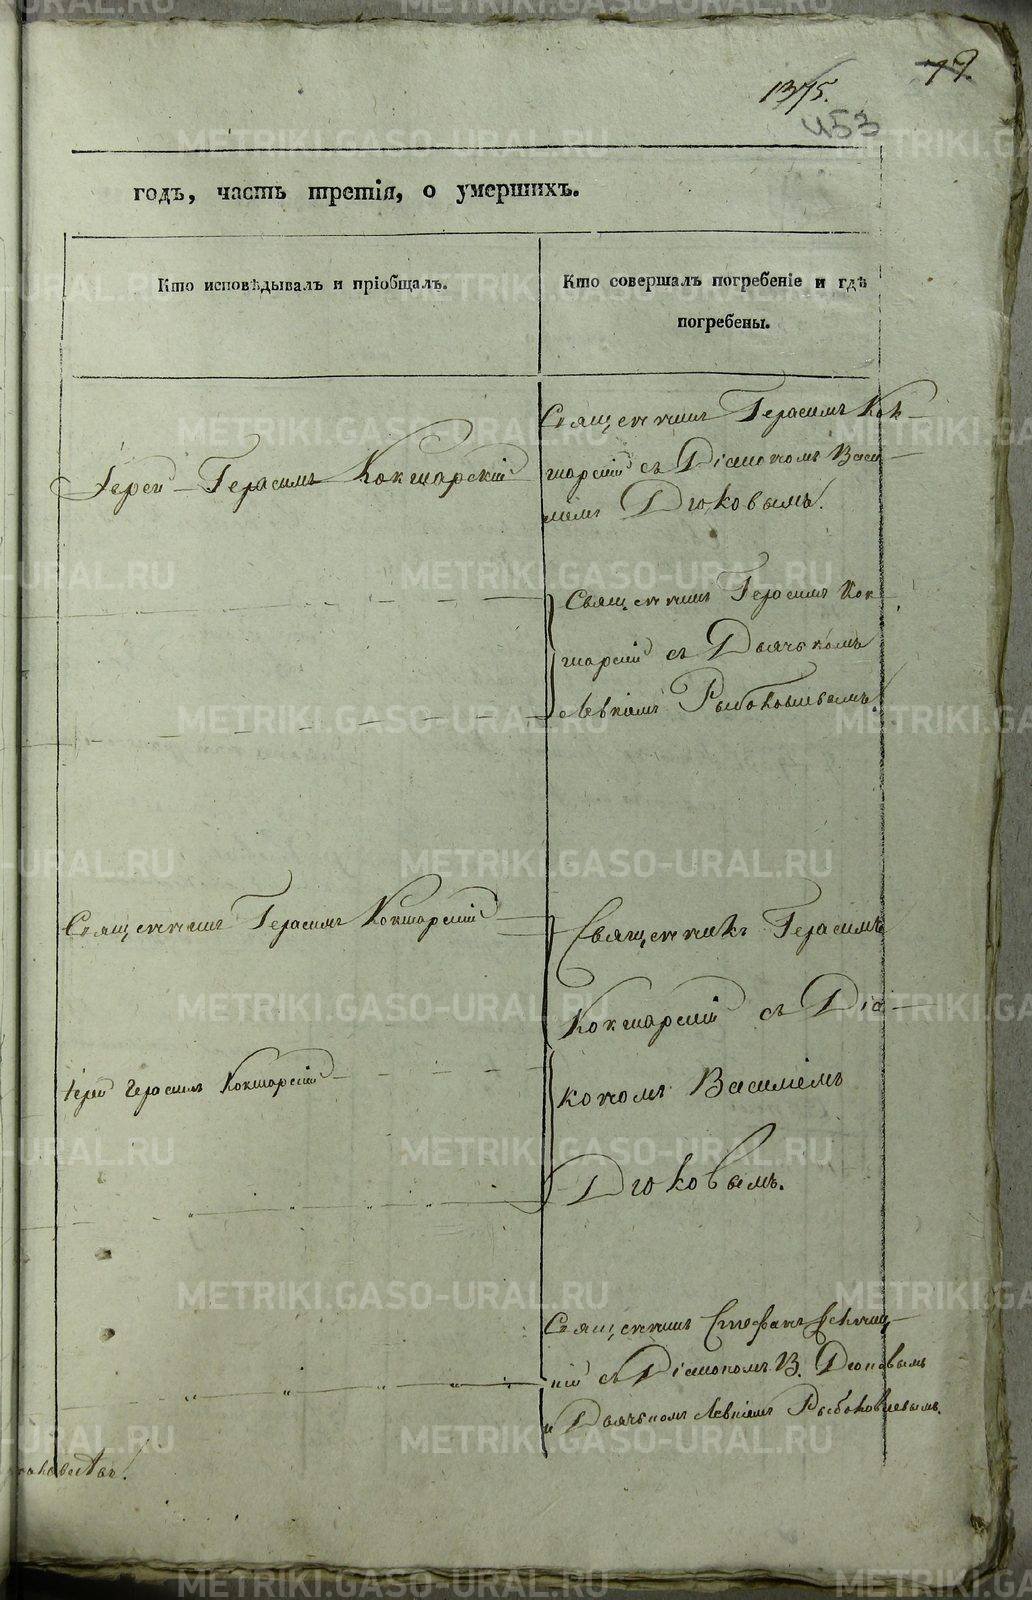 79.
1375.
453
годъ, часть третія, о умершихъ.
Кто исповѣдывалъ и пріобщалъ.
Кто совершалъ погребеніе и гдѣ
погребены.
Іерей Герасимъ Кокшарскій
Священникъ Герасимъ Кок-
шарскій съ Діакономъ Васи-
ліемъ Дюковымъ.
Священникъ Герасимъ Кок-
шарскій съ Дьячкомъ
Левкіемъ
Священникъ Герасимъ Кокшарскій
Священникъ Герасимъ
Кокшарскій съ Діа-
кономъ Василіемъ
Дюковымъ.
Іерей Герасимъ Кокшарскій
Священникъ Стефанъ
съ Діакономъ В. Дюковымъ
и Дьячкомъ Левкіемъ
METRIKI.GASO-URAL.RU